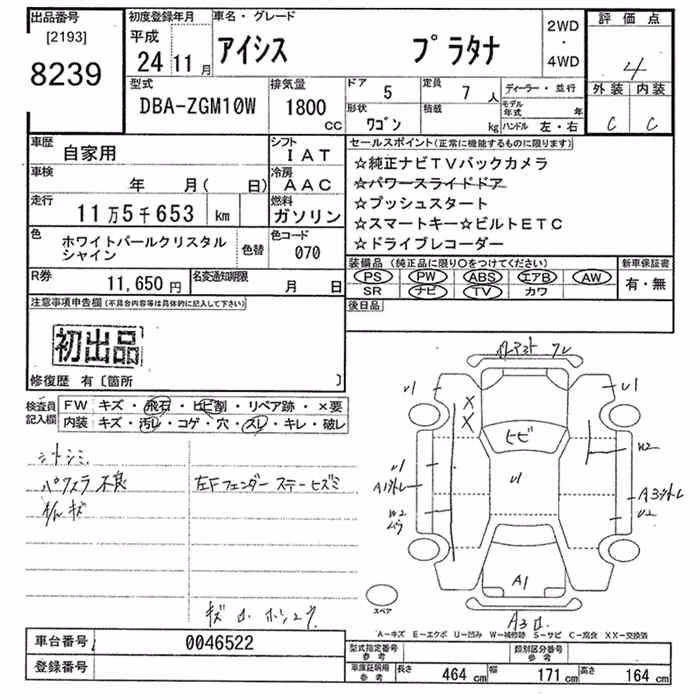 出品番号
[2193]
8239
初度登録年月
平成
24 11月
車名・グレード
アイシス プラタナ
2WD
・
4WD
評価点
4
外装 内装
C C
型式
DBA-ZGM10W
排気量
1800
CC
ドア
5
定員
7 人
形状
ワゴン
積載
kg
ディーラー・並行
モデル年式 年
ハンドル 左・右
車歴
自家用
シフト
IAT
車検
年 月( 日)
冷房
AAC
走行
11万5千653 km
燃料
ガソリン
色
ホワイトパールクリスタル
シャイン
色替
色コード
070
R券
11,650 円
名変通知期限
月 日
セールスポイント(正常に機能するものに限ります)
☆純正ナビTVバックカメラ
☆パワースライドドア
☆プッシュスタート
☆スマートキー☆ビルトETC
☆ドライブレコーダー
装備品(純正品に限り○をつけてください)
PS PW ABS エアB AW
SR ナビ TV カワ
新車保証書
有・無
後日品
注意事項申告欄(不具合内容等は具体的に記入して下さい)
初出品
修復歴 有〔箇所 〕
検査員記入欄
FW キズ・飛石・ヒビ割・リペア跡・×要
内装 キズ・汚レ・コゲ・穴・ズレ・キレ・破レ
シートシミ
パワスラ不良
左Fフェンダーステーヒズミ
U1
U1
X
X
ヒビ
W2
U1
A1
U1
A3
U2
W2
A1
A3
スペア
A-キズ E-エクボ U-凹み W-補修跡 S-サビ C-腐食 XX-交換済
車台番号
0046522
登録番号
型式指定番号
参考
類別区分番号
参考
車庫証明用
参考
長さ 464 cm 幅 171 cm 高さ 164 cm